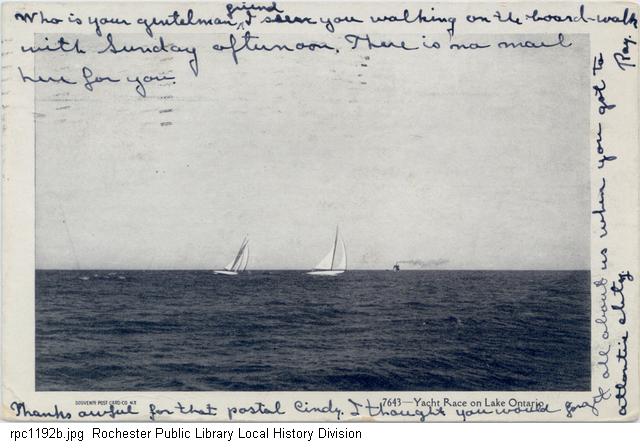 Who is your gentelman friend I seen you walking on the board-walk
with Sunday afternoon. There is no mail
here for you
SOUVENIR POST CARD CO. N.Y.
7643—Yacht Race on Lake Ontario
Thanks awful for that postal Cindy. I thought you would forget
all about us when you got to
atlantic city Ray.
rpc1192b.jpg Rochester Public Library Local History Division